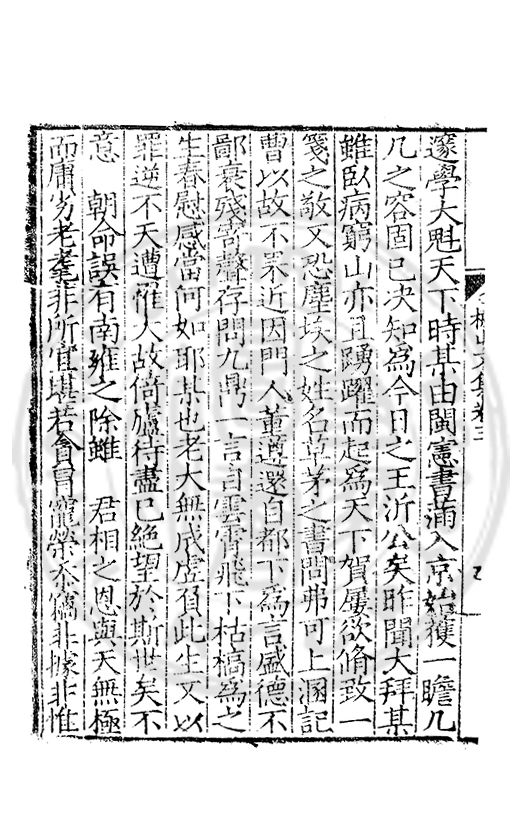 邃學大魁天下時某由閩憲書滿入京始獲一瞻几
几之容固已决知為今日之王沂公矣昨聞大拜某
雖臥病窮山亦且踴躍而起為天下賀屢欲脩致一
箋之敬又恐塵埃之姓名草茅之書問弗可上溷記
曹以故不果近因門人董遵還自都下為言盛德不
鄙衰殘寄聲存問九鼎一言自雲霄飛下枯槁為之
生春慰感當何如耶某也老大無成虛負此生又以
罪逆不天遭罹人故倚廬待盡已絕望於斯世矣不
意　朝命誤有南雍之除雖　君相之恩與天無極
而庸劣老耄非所宜堪若貪冒寵榮忝竊非據非惟
山文集卷三